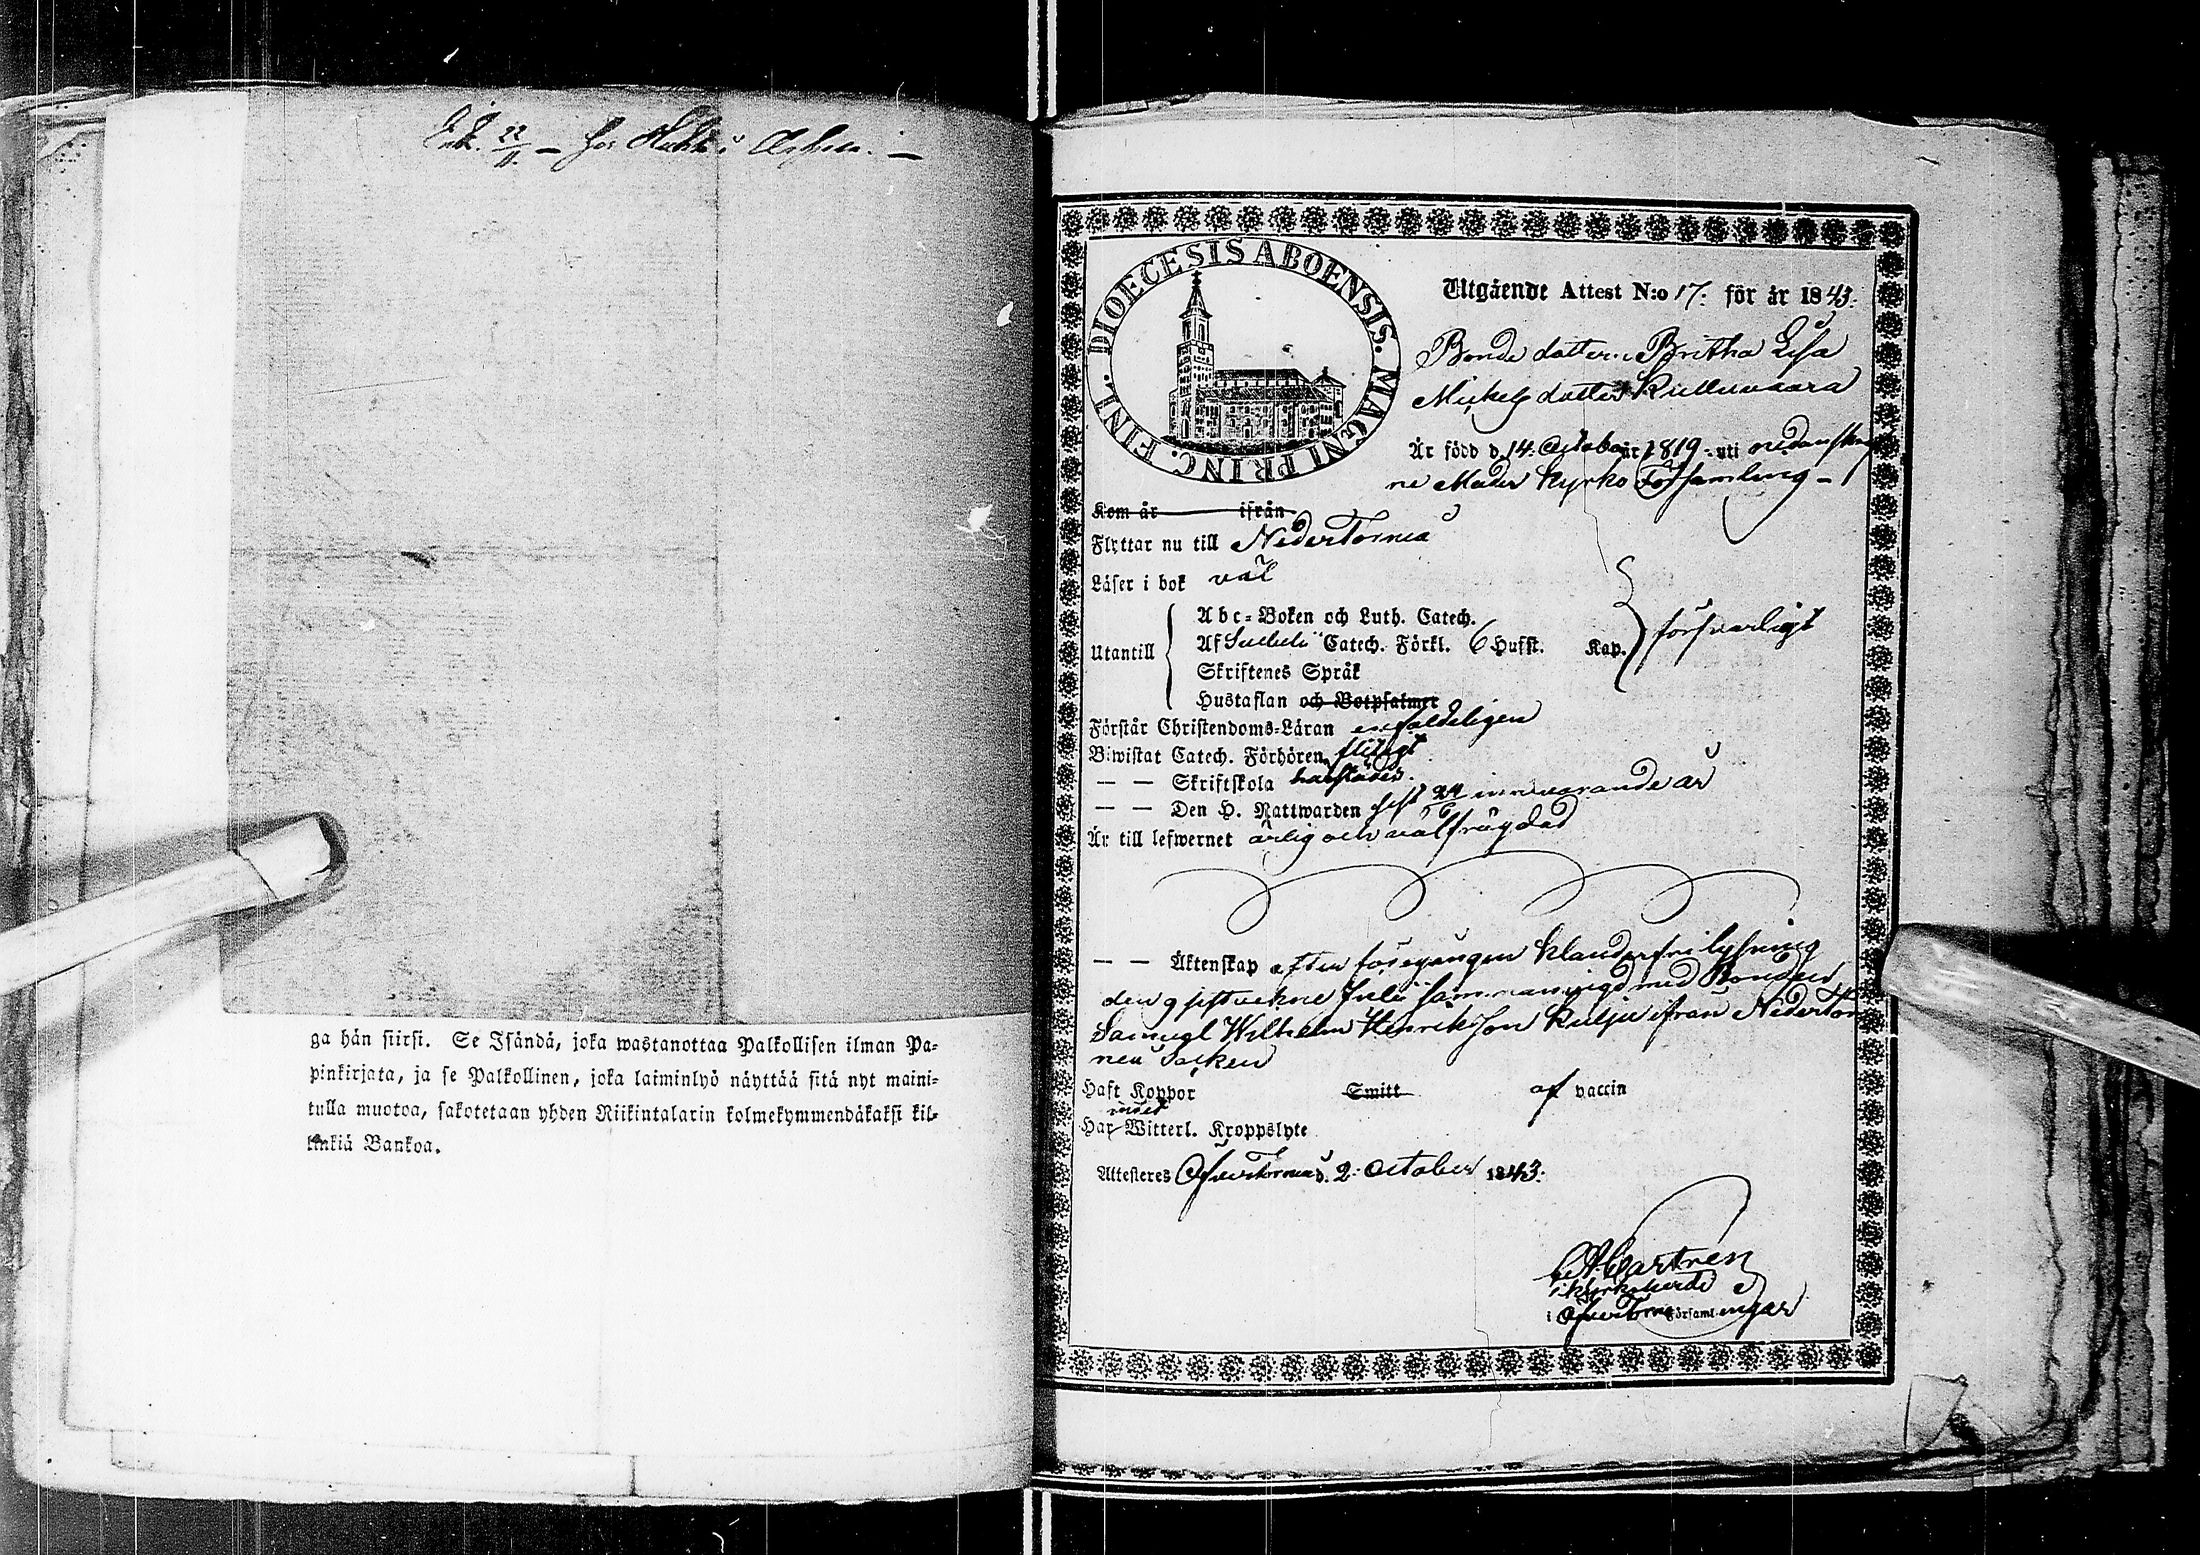 Ink. 22/11. — hos
ga hän siirsi. Se Isändä, joka wastanottaa Palkollisen ilman Pa-
pinkirjata, ja se Palkollinen, joka laiminlyö näyttää sitä nyt maini-
tulla muotoa, sakotetaan yhden Riikintalarin kolmekymmendäkaksi kil-
linkiä Bankoa.
DIOECESIS ABOENSIS. MAGNI PRINC. FINL.
Utgående Attest N:o 17. för år 1843.
Bonde dottern Britha Lisa
Mickels dotter Kulluvaara
Är född d. 14. October år 1819 uti nedanskref
ne Moder Kyrko Församling —
Kom år ifrån
Flyttar nu till Neder Torneå
Läser i bok väl
Abc-Boken och Luth. Catech.
Utantill Af Svebelii Catech. Förkl. 6 Hufst. Kap. försvarligt
Skriftenes Språk
Hustaflan och Botpsalmer
Förstår Christendoms-Läran enfaldeligen
Biwistat Catech. Förhören flitigt
— — Skriftskola
— — Den H. Nattwarden sist 24/6 innevarande år
Är till lefwernet ärlig och välfrägdad
— — Äktenskap efter föregången klanderfri lysning
den 9 sistvekne Julii sammanvigd med Bonden
Samuel Wilhelm Henriksson Kulju ifrån Neder Tor
neå Socken
Haft Koppor Smitt af vaccin
intet
Har Witterl. Kroppslyte
Attesteres Öfver Torneå d. 2. October 1843.
C A Castrén
Kyrkoherde
i Öfver Torneå Församlingar